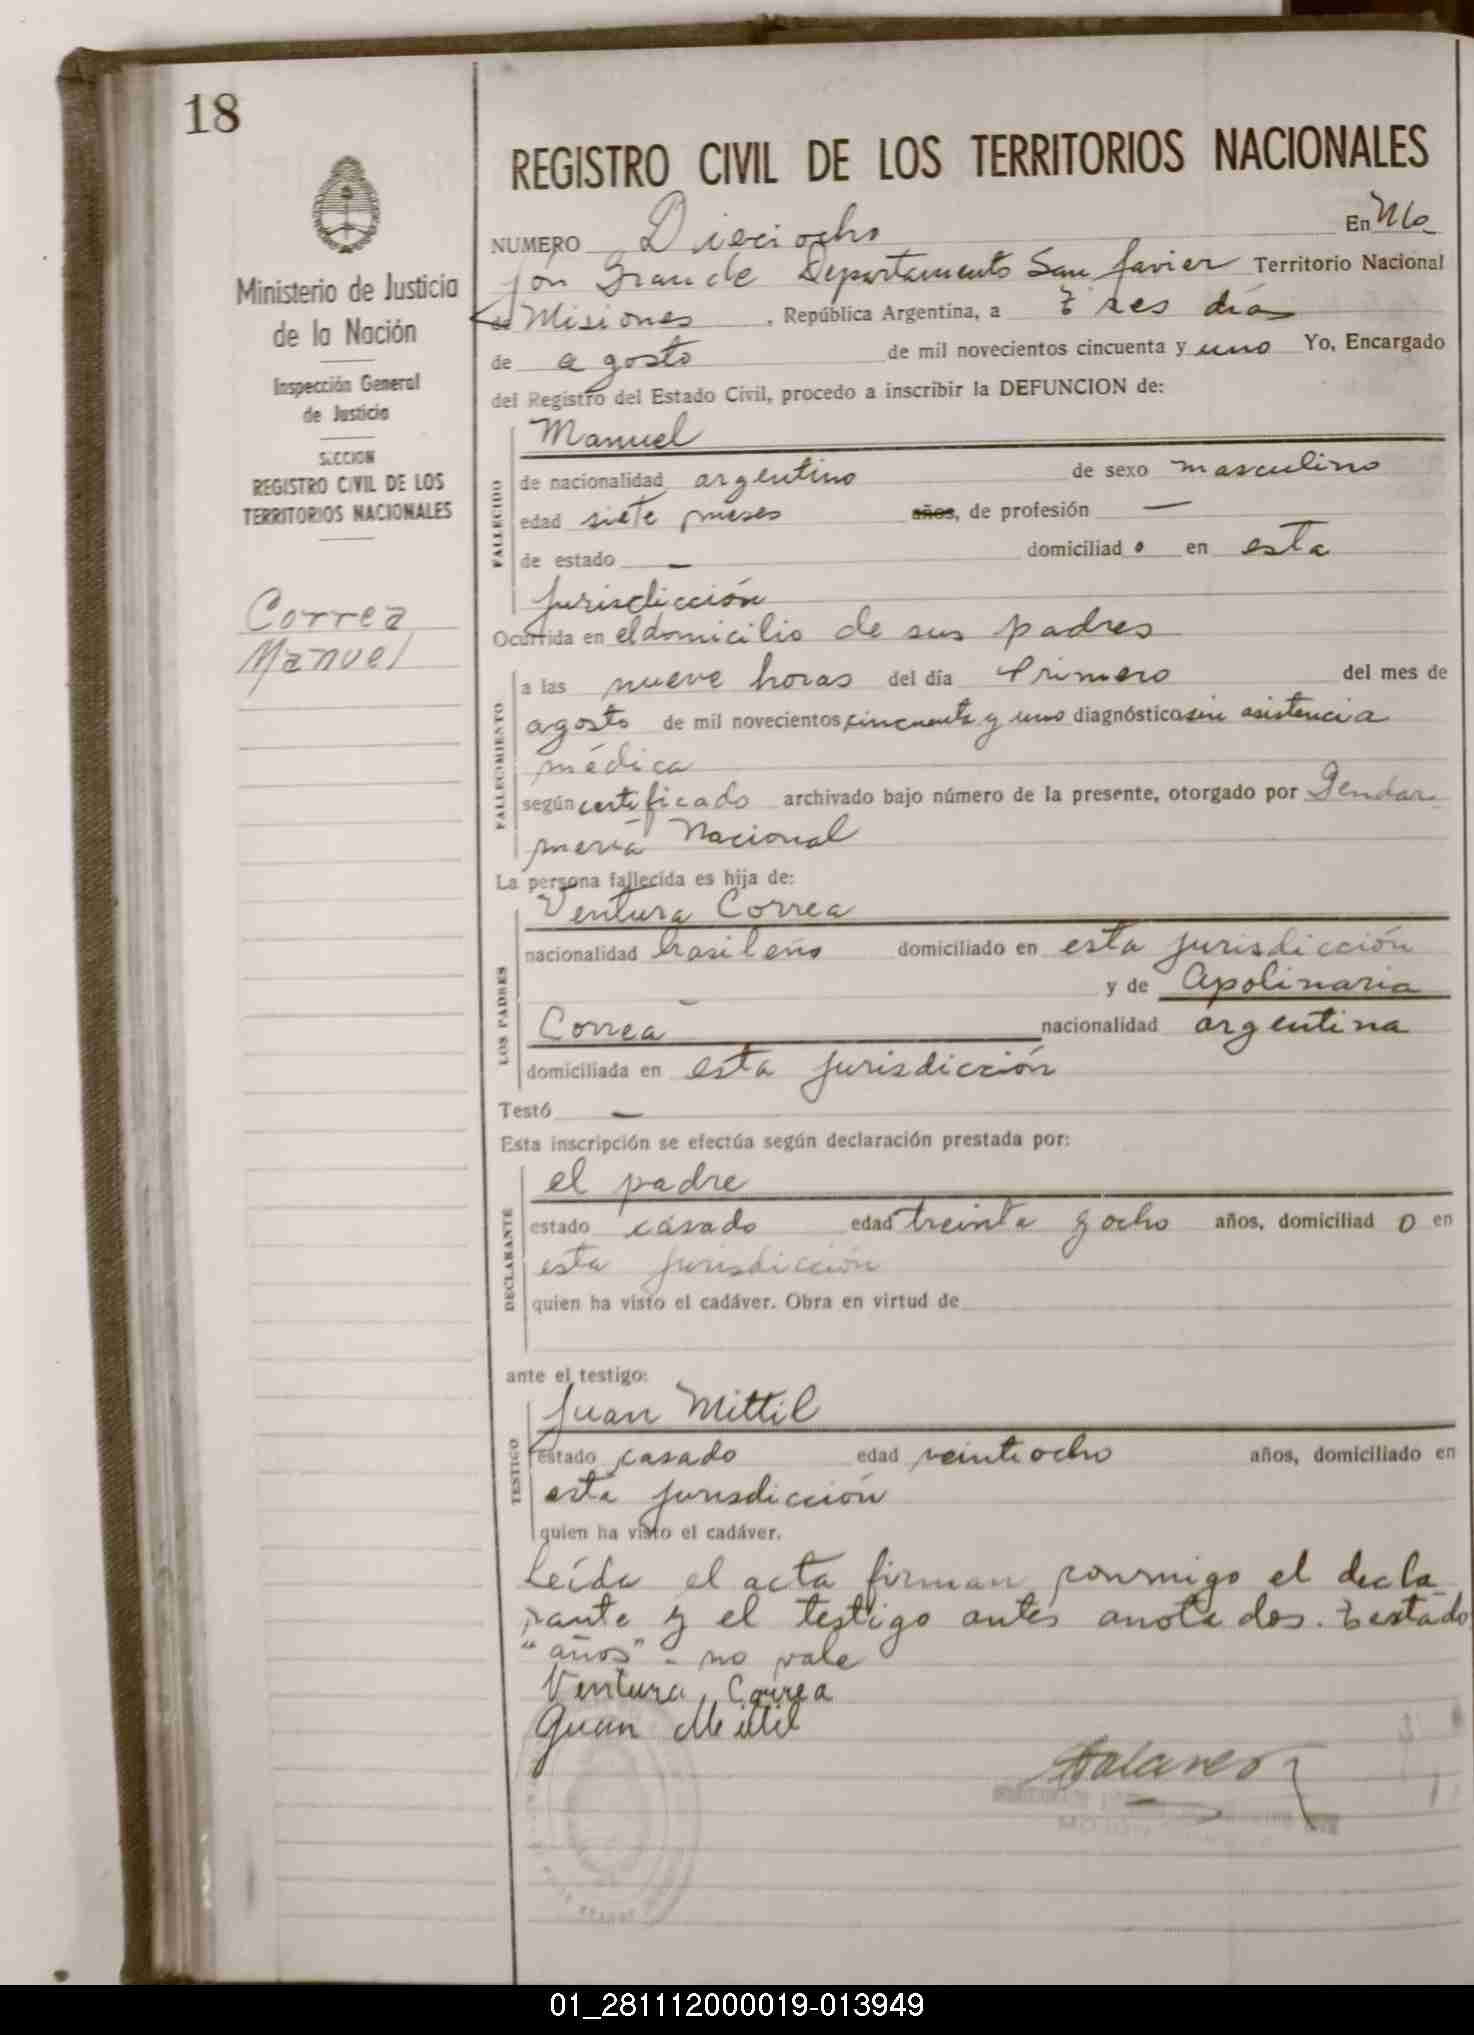 18
Ministerio de Justicia
de la Nación
Inspección General
de Justicia
SECCION
REGISTRO CIVIL DE LOS
TERRITORIOS NACIONALES
Correa
Manuel
REGISTRO CIVIL DE LOS TERRITORIOS NACIONALES
NUMERO Dieciocho En Mo
jón Grande Departamento San Javier Territorio Nacional
de Misiones, República Argentina, a tres días
de agosto de mil novecientos cincuenta y uno Yo, Encargado
del Registro del Estado Civil, procedo a inscribir la DEFUNCION de:
FALLECIDO
Manuel
de nacionalidad argentino de sexo masculino
edad siete meses años, de profesión —
de estado — domiciliad o en esta
jurisdicción
Ocurrida en el domicilio de sus padres
FALLECIMIENTO
a las nueve horas del día Primero del mes de
agosto de mil novecientos cincuenta y uno diagnóstico sin asistencia
médica
según certificado archivado bajo número de la presente, otorgado por Gendar-
mería Nacional
La persona fallecida es hija de:
LOS PADRES
Ventura Correa
nacionalidad brasileño domiciliado en esta jurisdicción
— y de Apolinaria
Correa nacionalidad argentina
domiciliada en esta jurisdicción
Testó —
Esta inscripción se efectúa según declaración prestada por:
DECLARANTE
el padre
estado casado edad treinta y ocho años, domiciliad o en
esta jurisdicción
quien ha visto el cadáver. Obra en virtud de
ante el testigo:
TESTIGO
Juan Mittil
estado casado edad veintiocho años, domiciliado en
esta jurisdicción
quien ha visto el cadáver.
Leída el acta firman conmigo el decla-
rante y el testigo antes anotados. Testado
"años" - no vale
Ventura Correa
Juan Mittil
01_281112000019-013949